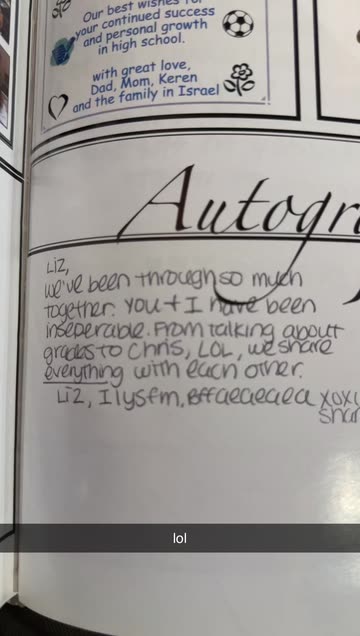 Our best wishes for
your continued success
and personal growth
in high school.
with great love,
Dad, Mom, Keren
and the family in Israel
Autogr
Liz,
we've been through so much
together. You + I have been
inseperable. From talking about
grades to Chris, LOL, we share
everything with each other.
Liz, Ilysfm, Bffaeaeaea xoxo
shar
lol